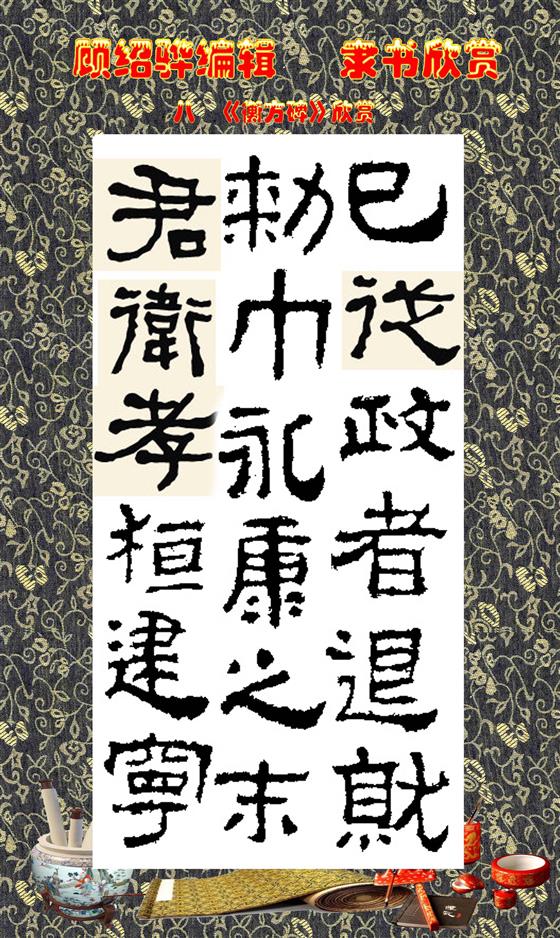 顾绍骅编辑 隶书欣赏
八 《衡方碑》欣赏
已從政者退就
勑巾永康之末
君衛孝桓建寧